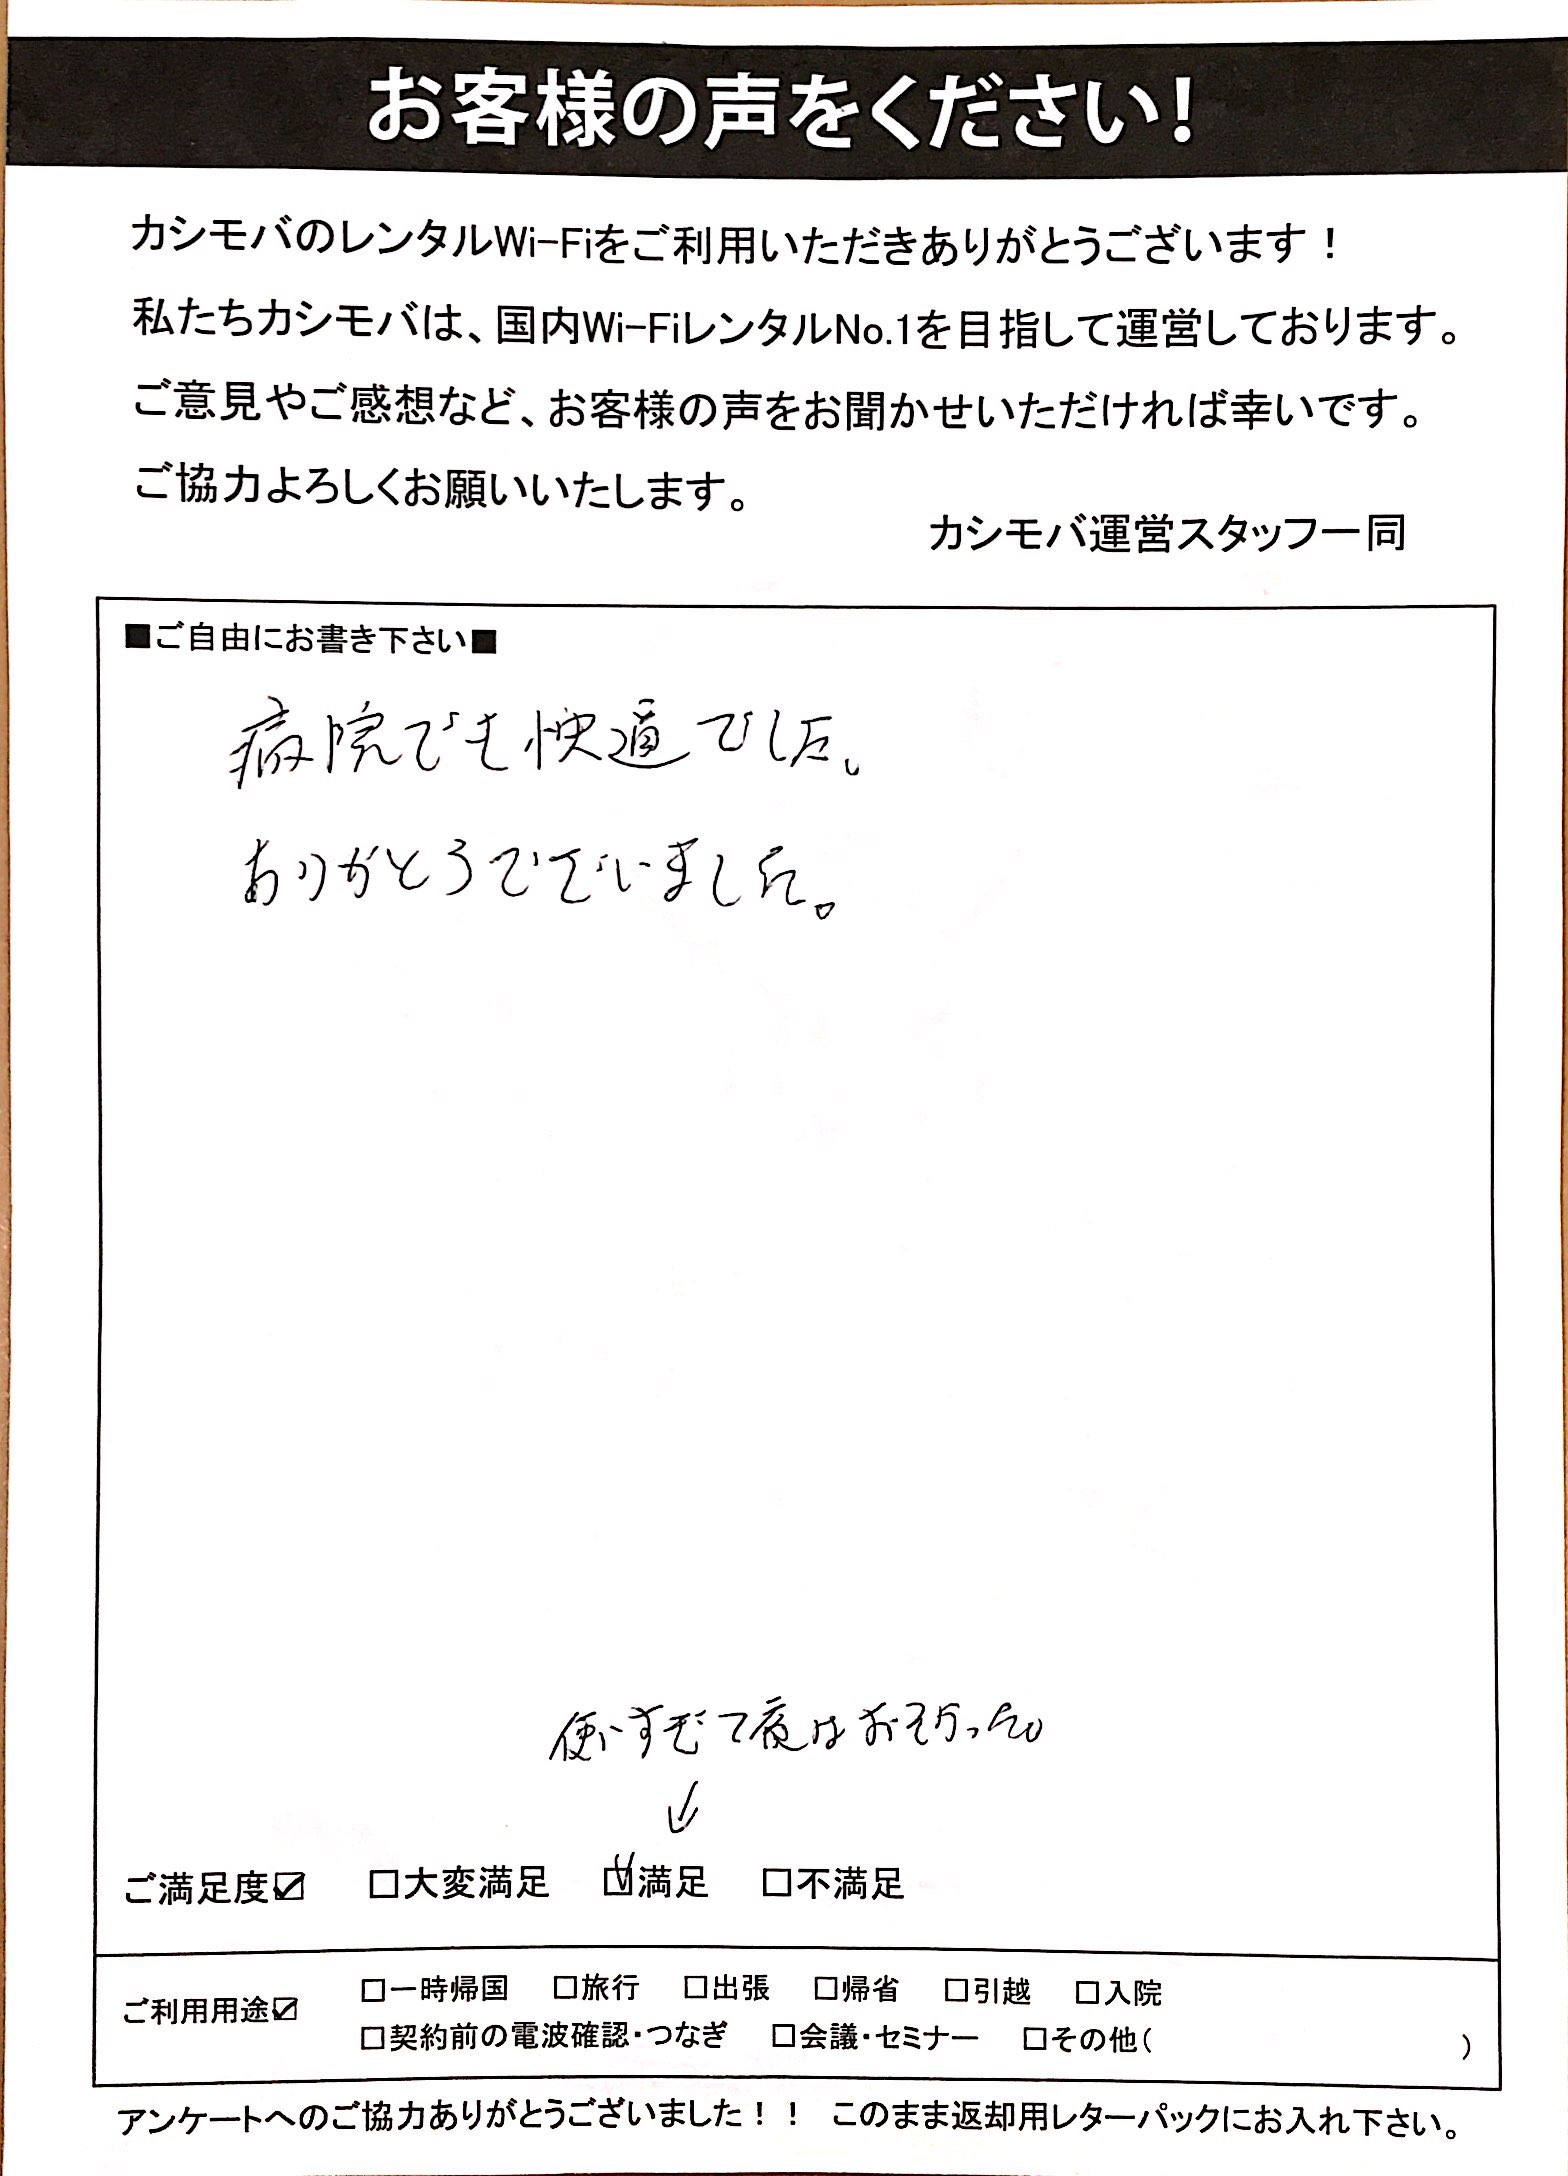 お客様の声をください！
カシモバのレンタルWi-Fiをご利用いただきありがとうございます！
私たちカシモバは、国内Wi-FiレンタルNo.1を目指して運営しております。
ご意見やご感想など、お客様の声をお聞かせいただければ幸いです。
ご協力よろしくお願いいたします。
カシモバ運営スタッフ一同
■ご自由にお書き下さい■
病院でも快適でした。
ありがとうございました。
使いすぎて夜はおそかった。
↓
ご満足度☑ □大変満足 ☑満足 □不満足
ご利用用途☑ □一時帰国 □旅行 □出張 □帰省 □引越 □入院
□契約前の電波確認・つなぎ □会議・セミナー □その他( )
アンケートへのご協力ありがとうございました！！ このまま返却用レターパックにお入れ下さい。